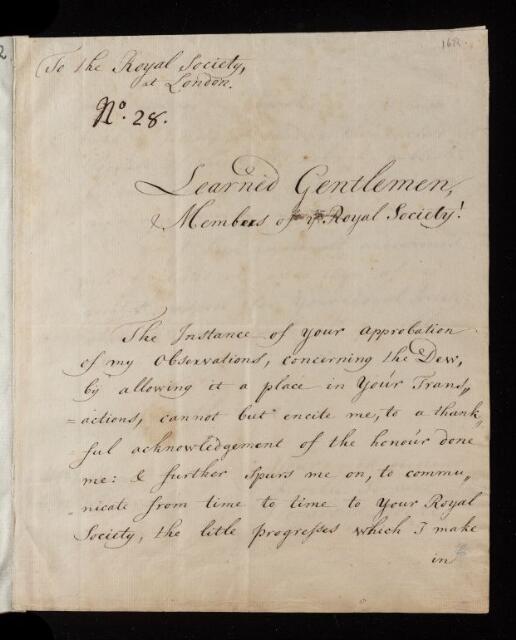 To the Royal Society,
at London.
No. 28.
Learned Gentlemen,
& Members of ye Royal Society!
The Instance of your approbation
of my Observations, concerning the Dew,
by allowing it a place in Your Trans„
=actions, cannot but encite me, to a thank„
ful acknowledgement of the honour done
me: & further spurs me on, to commu„
=nicate from time to time to Your Royal
Society, the litle progresses which I make
in